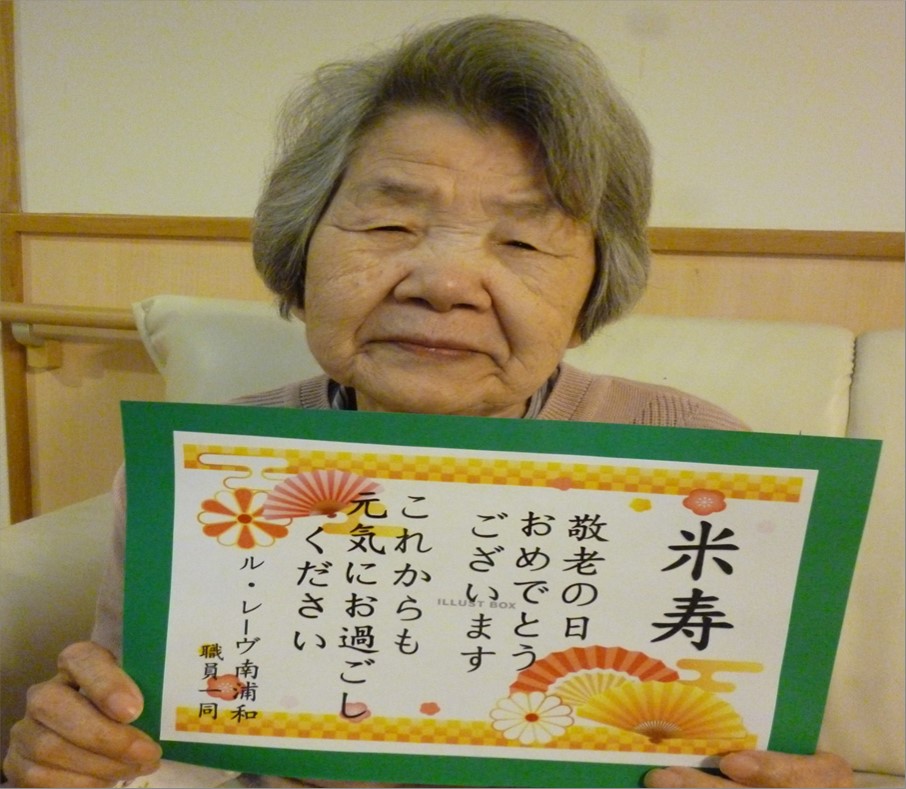 米寿
敬老の日
おめでとう
ございます
これからも
元気にお過ごし
ください
ル・レーヴ南浦和
職員一同
ILLUST BOX